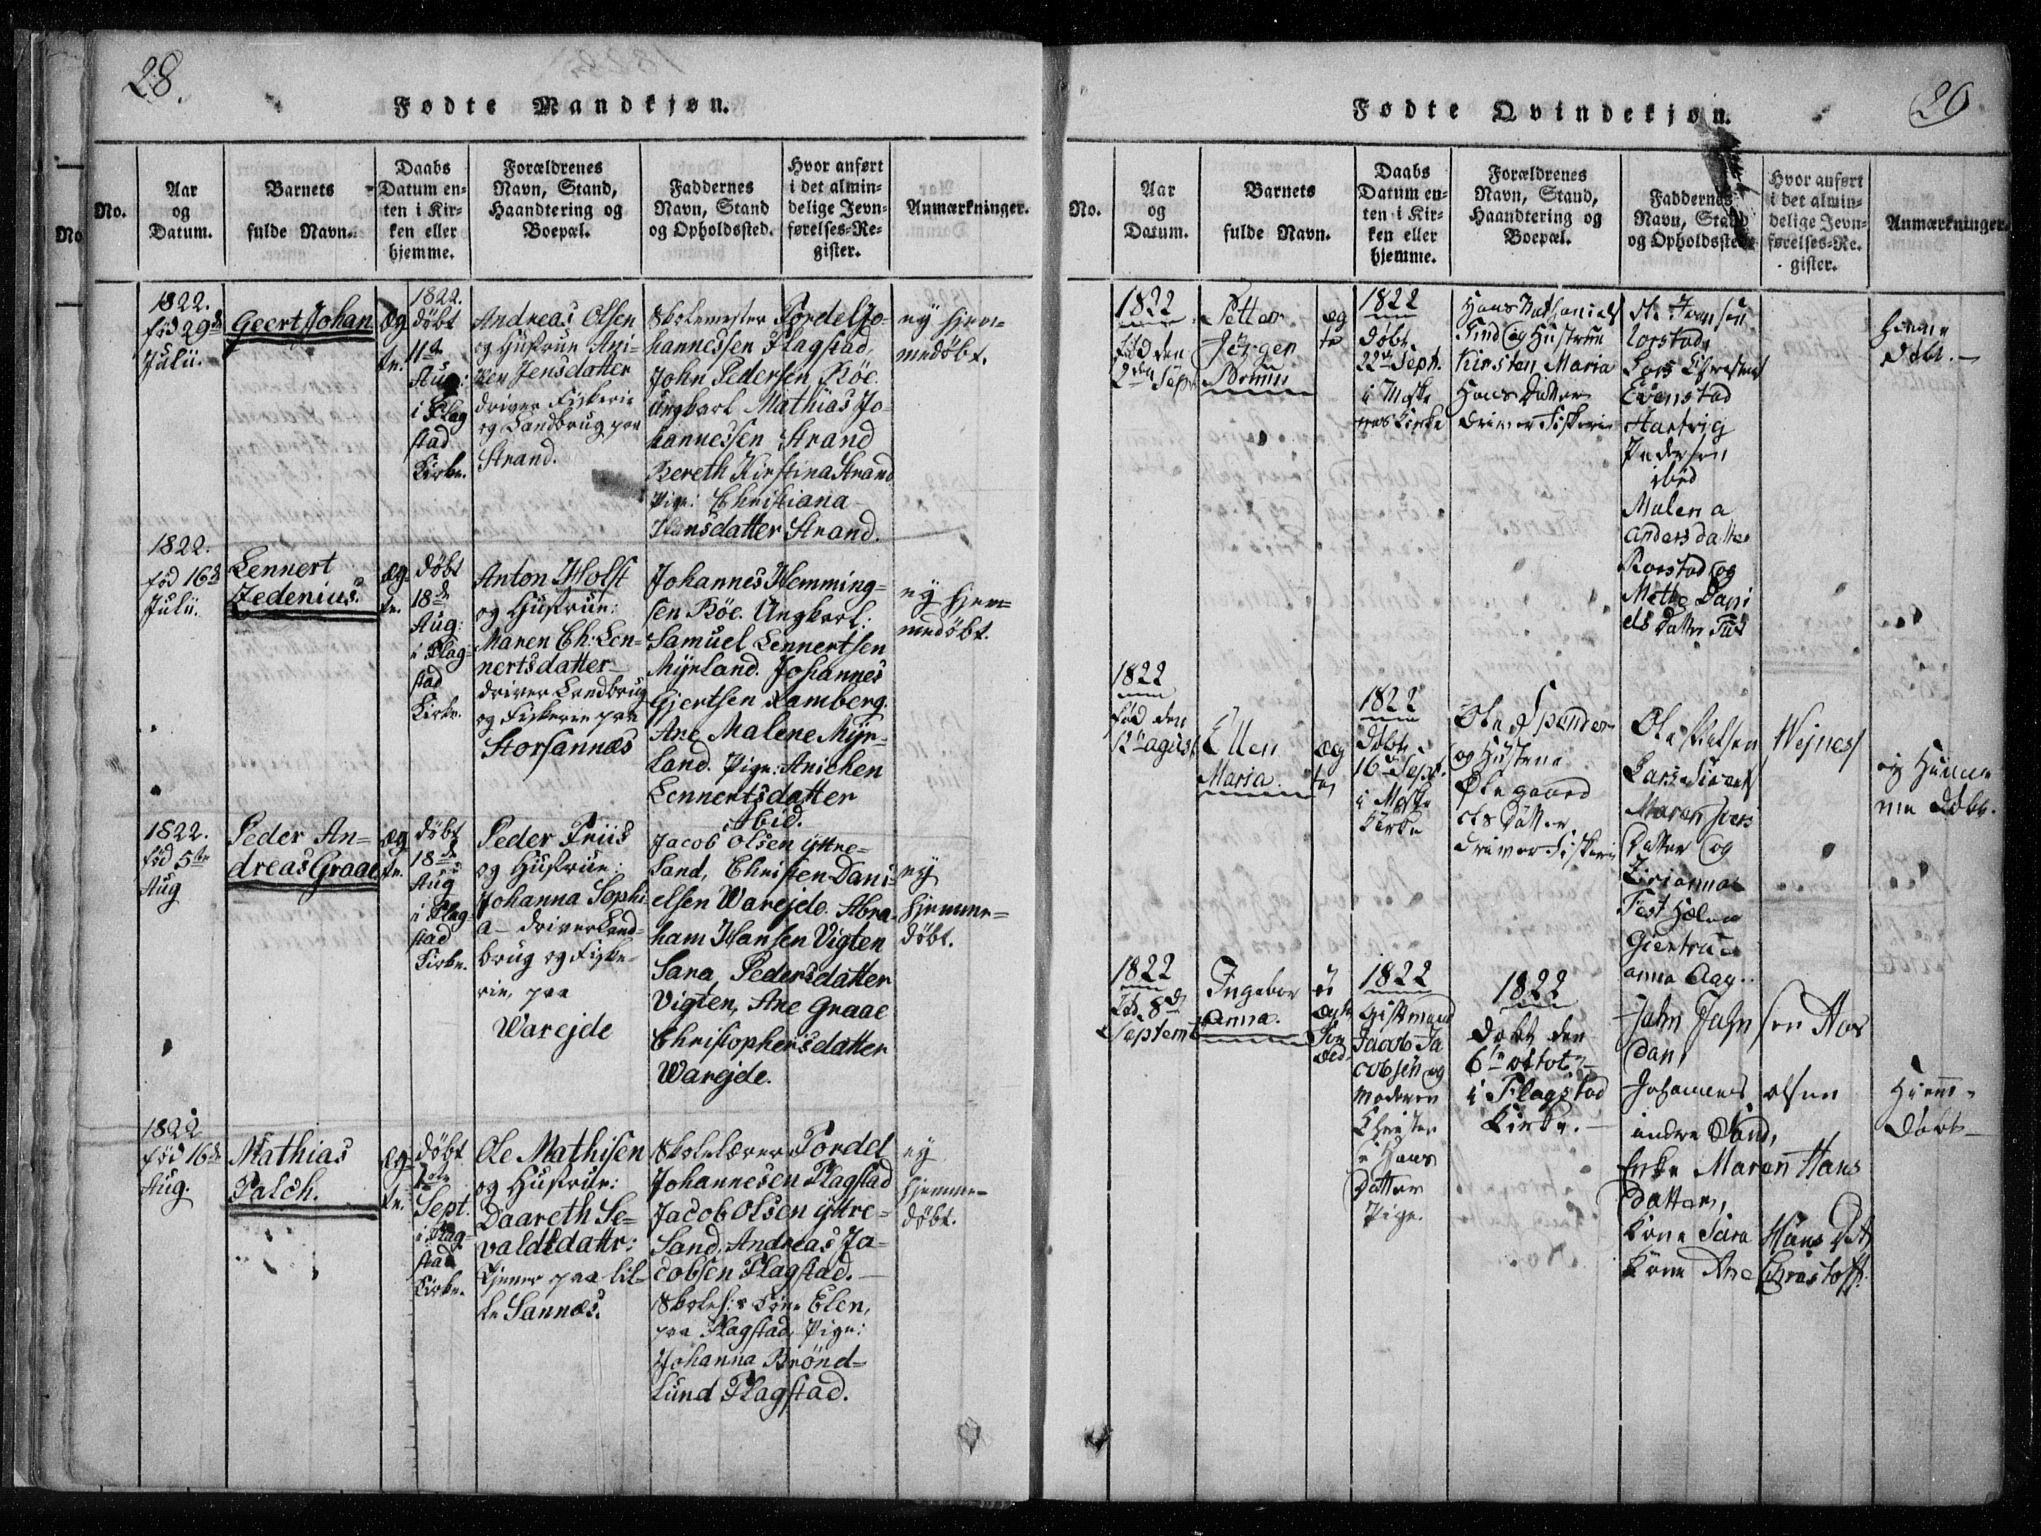 28.
Fødte Mandkjøn.
No.
Aar
og
Datum.
Barnets
fulde Navn.
Daabs
Datum en-
ten i Kir-
ken eller
hjemme.
Forældrenes
Navn, Stand,
Haandtering og
Boepæl.
Faddernes
Navn, Stand
og Opholdssted.
Hvor anført
i det almin-
delige Jevn-
førelses-Re-
gister.
Anmærkninger.
1822.
fød 29de
Julii.
Geert Johan
Æg
te.
1822.
døbt
11te
Aug:
i Flag
stad
Kirke.
Andreas Olsen
og Hustrue Ani-
ken Jensdatter
driver Fiskerie
og Landbrug paa
Strand.
Skolemester Tordel Jo-
hannessen Flagstad,
John Pedersen Böe.
Ungkarl Mathias Jo-
hannessen Strand
Bereth Kirstina Strand
Pige: Christiana
Hansdatter Strand.
ey hjem-
medøbt.
1822.
fød 16de
Julii.
Lennert
Zedenius.
Æg
te.
døbt
18de
Aug:
i Flag-
stad
Kirke.
Anton Holst
og Hustrue:
Maren Ch: Len-
nertsdatter
driver Landbrug
og Fiskerie paa
Storsannæs
Johannes Hemming-
sen Böe. Ungkarl:
Samuel Lennertsen
Myrland. Johannes
Gjertsen Ramberg.
Ane Malene Myr-
land. Pige: Anichen
Lennertsdatter
Ibid.
ey hjem-
medøbt.
1822.
fød 5te
Aug
Peder An-
dreas Graae
Æg
te.
døbt
18de
Aug
i Flag-
stad
Kirke.
Peder Friis
og Hustrue:
Johanna Sophi-
a - driver Land-
brug og Fiske-
rie, paa
Warejde
Jacob Olsen yttre-
Sand, Christen Dani-
elsen Warejde. Abra-
ham Hansen Vigten
Sara Pedersdatter
Vigten, Ane Graae
Christophersdatter
Warejde.
ey
hjemme-
døbt.
1822
fød 16de
Aug.
Mathias
Falch.
Æg
te.
døbt
1ste
Sept.
i Flag-
stad
Kirke.
Ole Mathisen
og Hustrue:
Daareth Se-
valdtdattr:
tjener paa lil-
le Sannæs.
Skolelærer Tordel
Johannesen Flagstad
Jacob Olsen yttre-
Sand, Andreas Ja-
cobsen Flagstad.
Skoles: Kone Elen,
paa Flagstad, Pige:
Johanna Brønd-
lund Flagstad.
ey
hjemme-
døbt.
29
Fødte Qvindekjøn.
No.
Aar
og
Datum.
Barnets
fulde Navn.
Daabs
Datum en-
ten i Kir-
ken eller
hjemme.
Forældrenes
Navn, Stand,
Haandtering og
Boepæl.
Faddernes
Navn, Stand
og Opholdssted
Hvor anført
i det almin-
delige Jevn-
førelses-Re-
gister.
Anmærkninger.
1822
fød den
2den Sept
Petter
Jørgen
æg
te
1822
døbt
22de Sept.
i Moske
næs Kirke
Hans Nathaniels
Find og Hustrue
Kirsten Maria
Hans Datter
driver Fiskerie
Evenstad
Hartvig
Pedersen
ibid
Malena
Anders datter
Rorstad og
Methe Dani
els Datter
Hjemme
døbt.
1822
fød den
12te agust
Ellen
Maria.
æg
te
1822
døbt.
16de Sept.
i Moske
Kirke
og Hustrue
Datter
driver Fiskerie
Ole Nielsen
Maren
Datter og
Giertrud
anna Aag..
ey Hiemme
døbt.
1822
fød 8de
Septemb
Ingebor
Anna.
u
ægte
1822
Gift mand
Jacob Ja
cobsen og
Moderen
Christen
e Hans
Datter
Pige.
1822
døbt den
6te octob
i Flagstad
Kirke.
John John sen Aas
dan,
Johannes olsen
indre Sand,
Enke Maren Hans
Datter,
Kone Sara Hans D
Kone Ane Christoff:
Hiemme
døbt